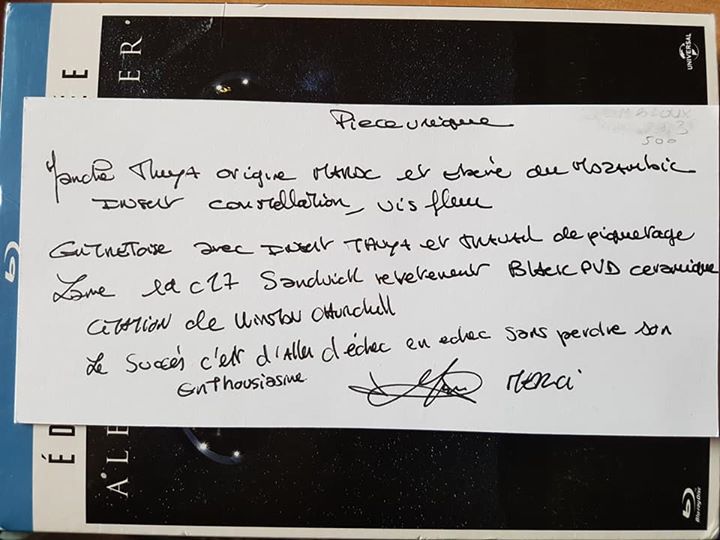 Piece unique
Manche Thuya origine MAROC et ébène du Mozambic
INSERT constellation, vis fleur
avec INSERT THUYA et TRAVAIL de piquetage
Lame 14 C 27 Sandwick revêtement Black PVD céramique
CITATION de Winston Churchill
Le Succès c'est d'Aller d'échec en echec sans perdre son
Enthousiasme MERCI
500
UNIVERSAL
Blu-ray Disc